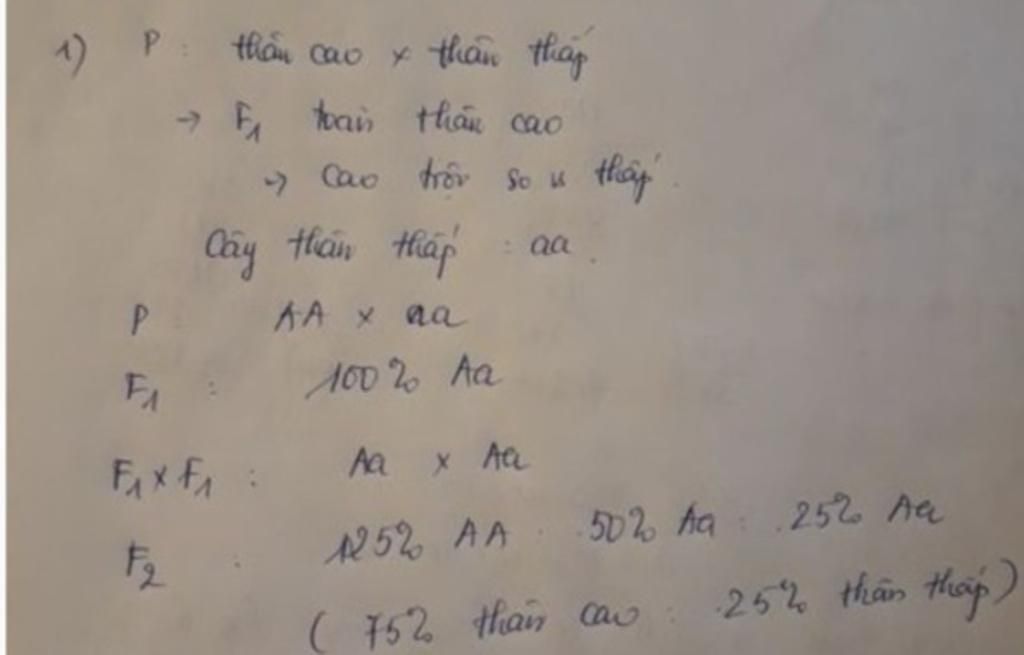 1) P : thân cao x thân thấp
→ F1 toàn thân cao
→ Cao trội so vs thấp.
Cây thân thấp : aa.
P AA x aa
F1 : 100% Aa
F1 x F1 : Aa x Aa
F2 : 25% AA : 50% Aa : 25% Aa
( 75% thân cao : 25% thân thấp )